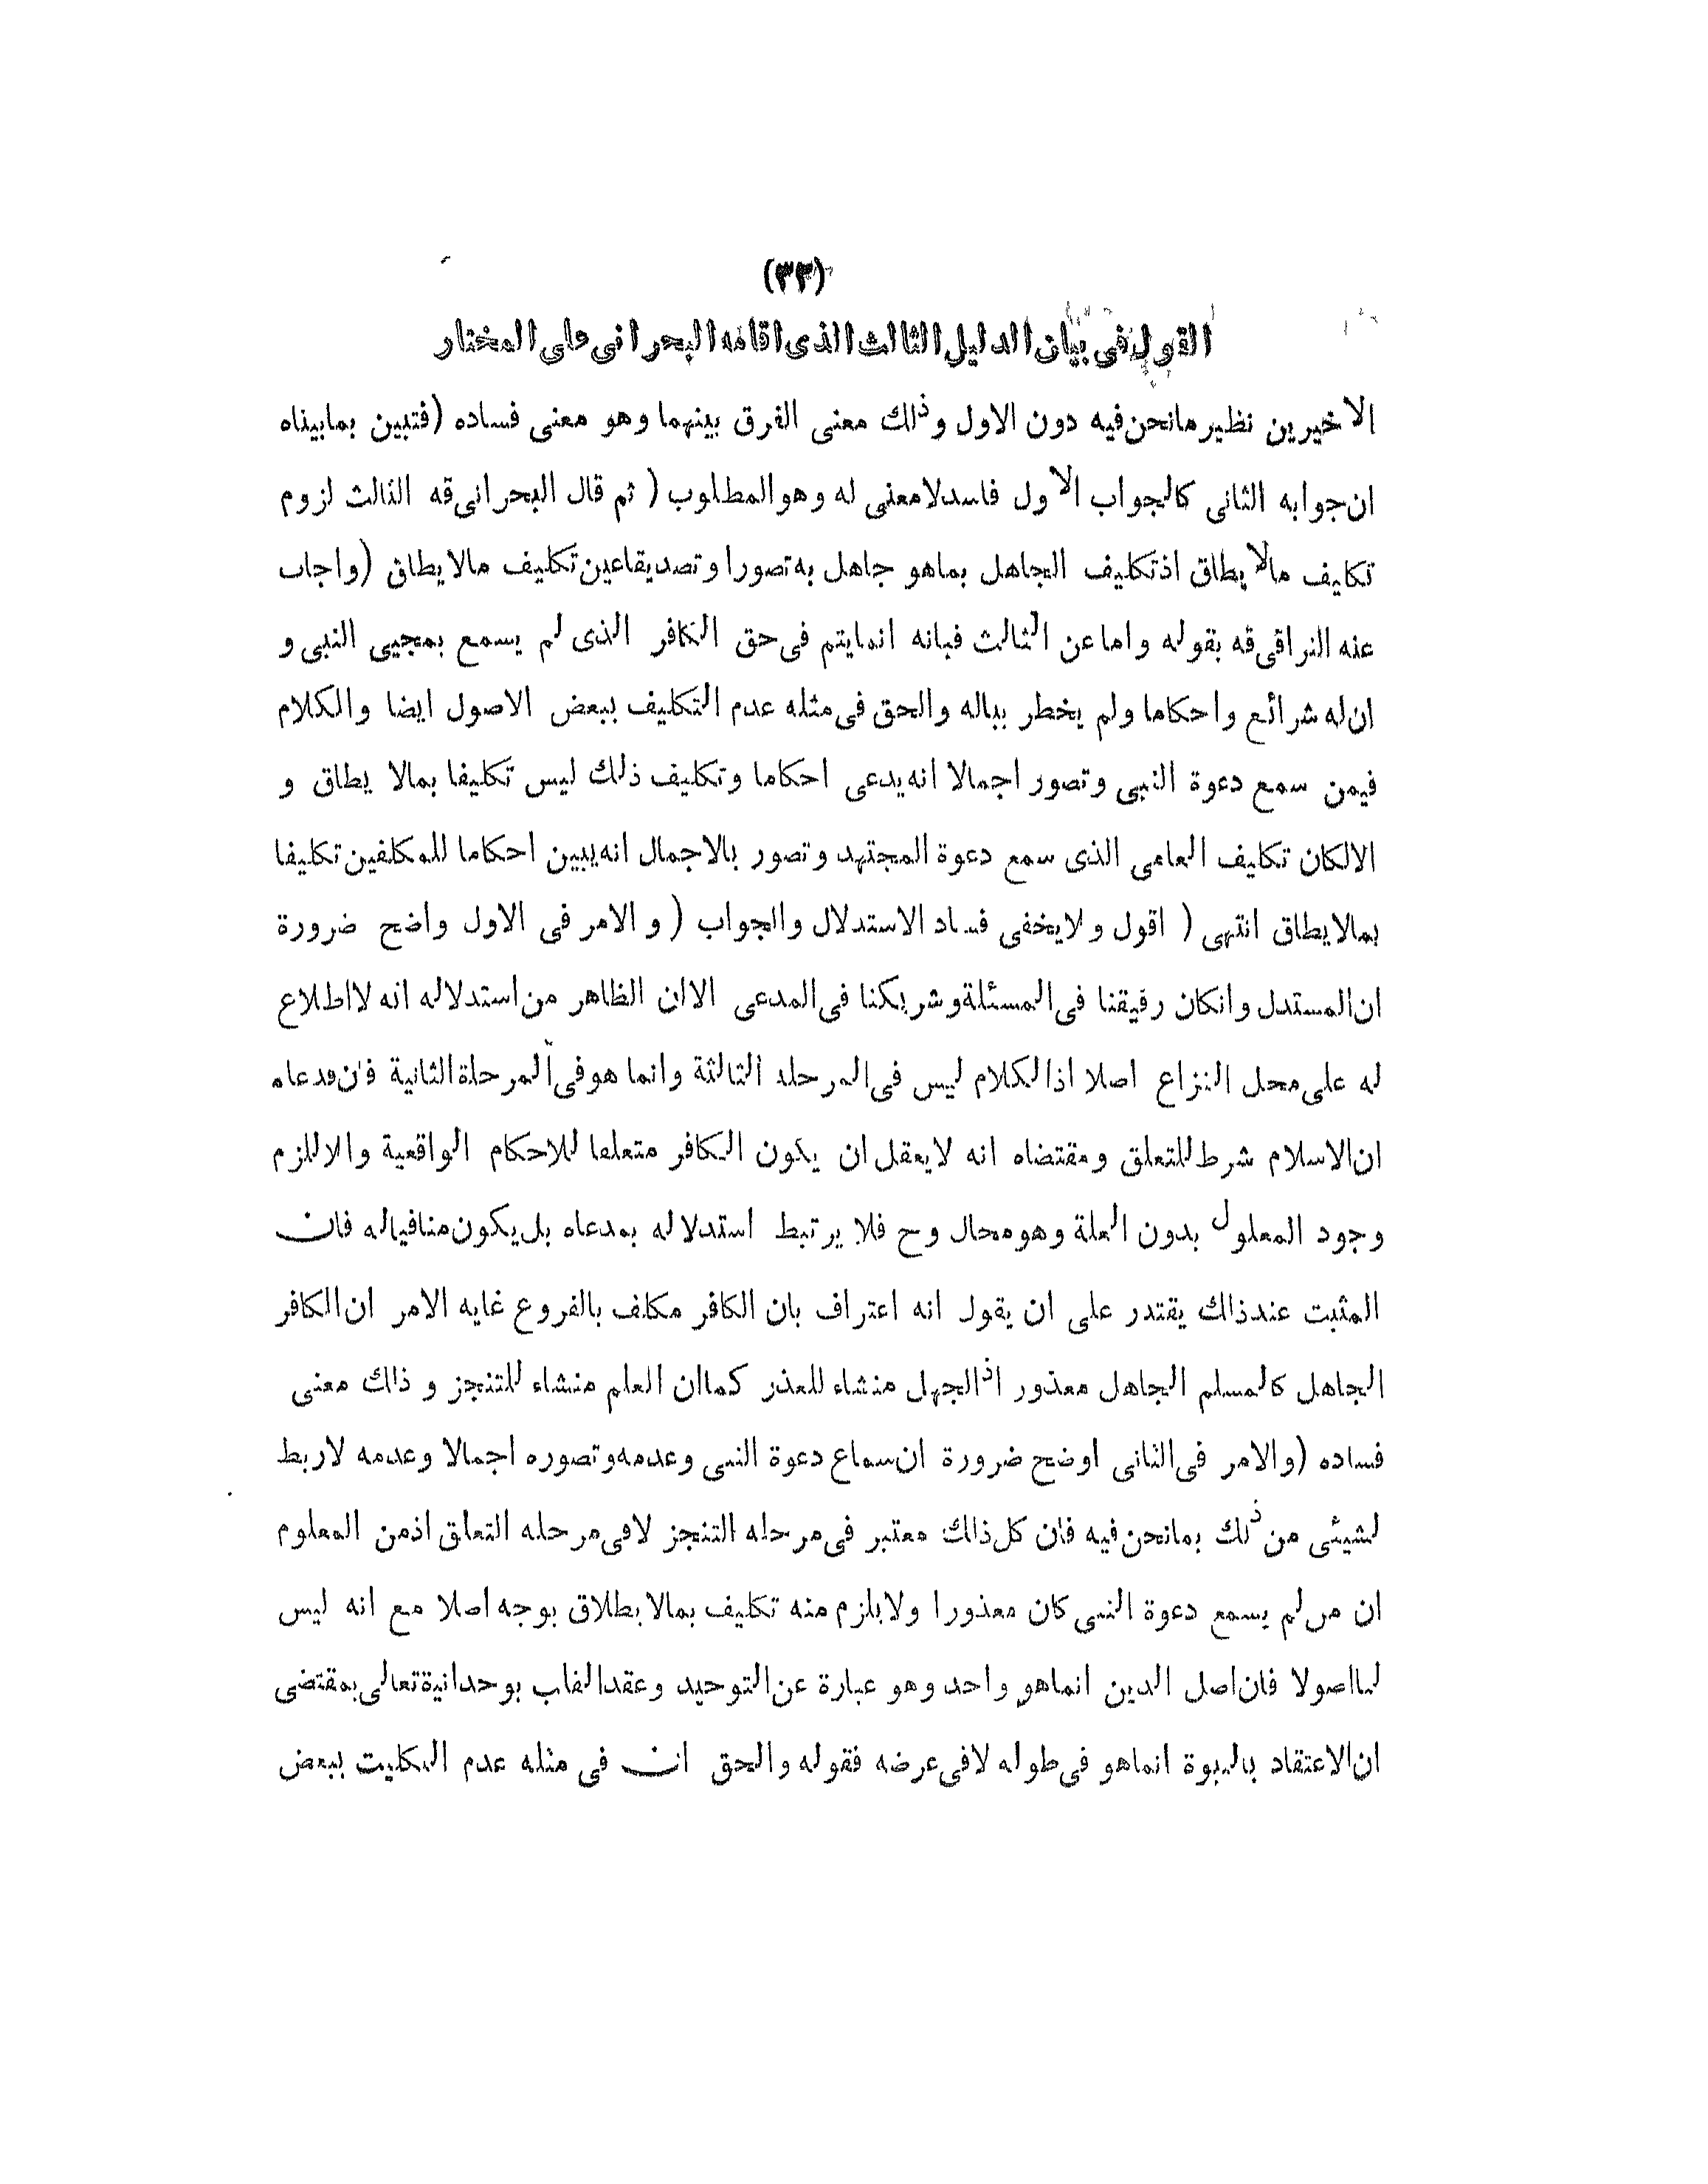 (٣٣)
القول فى بيان الدليل الثالث الذى اقامه البحرانى على المختار
الاخيرين نظير مانحن فيه دون الاول وذلك معنى الفرق بينهما وهو معنى فساده (فتبين بمابيناه
ان جوابه الثانى كالجواب الاول فاسد لامعنى له وهو المطلوب ( ثم قال البحرانى قه الثالث لزوم
تكليف مالا يطاق اذتكليف الجاهل بماهو جاهل به تصورا وتصديقاعين تكليف مالايطاق (واجاب
عنه النراقى قه بقوله واما عن الثالث فبانه انمايتم فى حق الكافر الذى لم يسمع بمجيى النبى و
ان له شرائع واحكاما ولم يخطر بباله والحق فى مثله عدم التكليف ببعض الاصول ايضا والكلام
فيمن سمع دعوة النبى وتصور اجمالا انه يدعى احكاما وتكليف ذلك ليس تكليفا بمالا يطاق و
الالكان تكليف العامى الذى سمع دعوة المجتهد وتصور بالاجمال انه يبين احكاما للمكلفين تكليفا
بمالايطاق انتهى ( اقول ولايخفى فساد الاستدلال والجواب ( و الامر فى الاول واضح ضرورة
ان المستدل وانكان رفيقنا فى المسئلة وشريكنا فى المدعى الاان الظاهر من استدلاله انه لااطلاع
له على محل النزاع اصلا اذالكلام ليس فى المرحله الثالثة وانما هوفى المرحلة الثانية فان مدعاه
ان الاسلام شرط للتعلق ومقتضاه انه لايعقل ان يكون الكافر متعلقا للاحكام الواقعية والاللزم
وجود المعلول بدون العلة وهو محال وح فلا يرتبط استدلاله بمدعاه بل يكون منافياله فان
المثبت عندذالك يقتدر على ان يقول انه اعتراف بان الكافر مكلف بالفروع غايه الامر ان الكافر
الجاهل كالمسلم الجاهل معذور اذالجهل منشاء للعذر كماان العلم منشاء للتنجز و ذالك معنى
فساده (والامر فى الثانى اوضح ضرورة ان سماع دعوة النبى وعدمه وتصوره اجمالا وعدمه لاربط
لشيئى من ذلك بمانحن فيه فان كل ذالك معتبر فى مرحله التنجز لافى مرحله التعلق اذمن المعلوم
ان من لم يسمع دعوة النبى كان معذورا ولايلزم منه تكليف بمالا بطلاق بوجه اصلا مع انه ليس
لنااصولا فان اصل الدين انماهو واحد وهو عبارة عن التوحيد وعقدالقاب بوحدانية تعالى بمقتضى
ان الاعتقاد بالنبوة انماهو فى طوله لافى عرضه فقوله والحق ان فى مثله عدم التكليف ببعض